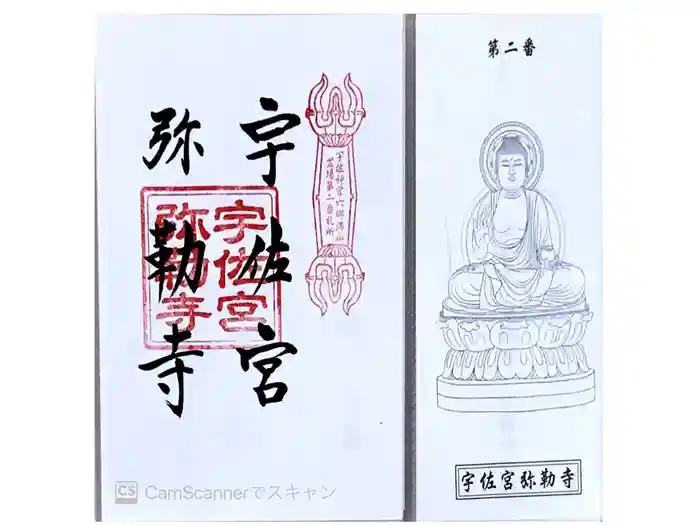 宇佐宮
弥勒寺
宇佐宮
弥勒寺
宇佐神宮六郷満山
霊場第二番札所
第二番
宇佐宮弥勒寺
CS CamScannerでスキャン